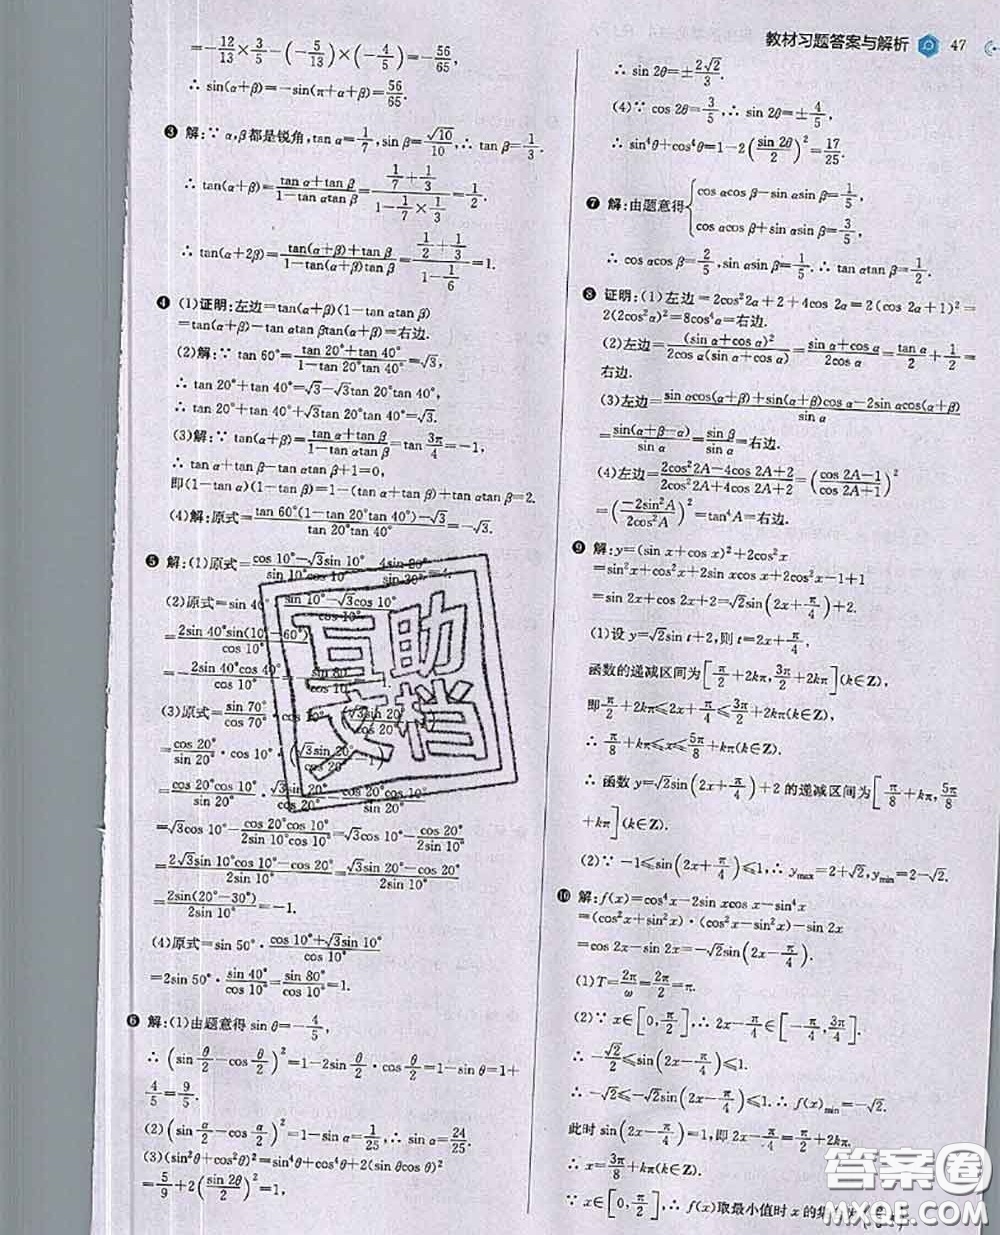 教材习题答案与解析 47
=-12/13×3/5-(-5/13)×(-4/5)=-56/65,
∴ sin(α+β)=-sin(π+α+β)=56/65.
❸ 解:∵ α,β都是锐角,tan α=1/7,sin β=√10/10,∴ tan β=1/3.
∴ tan(α+β)=(tan α+tan β)/(1-tan αtan β)=(1/7+1/3)/(1-1/7×1/3)=1/2.
∴ tan(α+2β)=(tan(α+β)+tan β)/(1-tan(α+β)tan β)=(1/2+1/3)/(1-1/6)=1.
❹ (1)证明:左边=tan(α+β)(1-tan αtan β)
=tan(α+β)-tan αtan βtan(α+β)=右边.
(2)解:∵ tan 60°=(tan 20°+tan 40°)/(1-tan 20°tan 40°)=√3,
∴ tan 20°+tan 40°=√3-√3tan 20°tan 40°,
∴ tan 20°+tan 40°+√3tan 20°tan 40°=√3.
(3)解:∵ tan(α+β)=(tan α+tan β)/(1-tan αtan β)=tan 3π/4=-1,
∴ tan α+tan β-tan αtan β+1=0,
即(1-tan α)(1-tan β)=1-(tan α+tan β)+tan αtan β=2.
(4)解:原式=(tan 60°(1-tan 20°tan 40°)-√3)/(tan 20°tan 40°)=-√3.
❺ 解:(1)原式=(cos 10°-√3sin 10°)/(sin 10°cos 10°) 4sin 20°/sin 20°=4.
(2)原式=sin 40° (sin 10°-√3cos 10°)/cos 10°
=2sin 40°sin(10°-60°)/cos 10°
=-2sin 40°cos 40°/cos 10° sin 80°
(3)原式=sin 70°/cos 70° √3sin 20°
=cos 20°/sin 20°·cos 10°·(√3sin 20°-cos 20°)
=cos 20°cos 10°/sin 20°·√3sin 20°-cos 20° /sin 20°
=√3cos 10°-cos 20°cos 10°/sin 20°=√3cos 10°-cos 20°/2sin 10°
=(2√3sin 10°cos 10°-cos 20°)/2sin 10°=(√3sin 20°-cos 20°)/2sin 10°
=2sin(20°-30°)/2sin 10°=-1.
(4)原式=sin 50°·(cos 10°+√3sin 10°)/cos 10°
=2sin 50°·sin 40°/cos 10°=sin 80°/cos 10°=1.
❻ 解:(1)由题意得 sin θ=-4/5,
∴ (sin θ/2-cos θ/2)²=1-2sin θ/2·cos θ/2=1-sin θ=1+
4/5=9/5.
(2)(sin α/2-cos α/2)²=1-sin α=1/25,∴ sin α=24/25.
(3)(sin²θ+cos²θ)²=sin⁴θ+cos⁴θ+2(sin θcos θ)²
=5/9+2(sin 2θ/2)²=1,
∴ sin 2θ=±2√2/3.
(4)∵ cos 2θ=3/5,∴ sin 2θ=±4/5,
∴ sin⁴θ+cos⁴θ=1-2(sin 2θ/2)²=17/25.
❼ 解:由题意得{cos αcos β-sin αsin β=1/5,
cos αcos β+sin αsin β=3/5,
∴ cos αcos β=2/5,sin αsin β=1/5.∴ tan αtan β=1/2.
❽ 证明:(1)左边=2cos²2α+2+4cos 2α=2(cos 2α+1)²=
2(2cos²α)²=8cos⁴α=右边.
(2)左边=(sin α+cos α)²/2cos α(sin α+cos α)=(sin α+cos α)/2cos α=tan α/2+1/2=
右边.
(3)左边=(sin αcos(α+β)+sin(α+β)cos α-2sin αcos(α+β))/sin α
=sin(α+β-α)/sin α=sin β/sin α=右边.
(4)左边=(2cos²2A-4cos 2A+2)/(2cos²2A+4cos 2A+2)=((cos 2A-1)/(cos 2A+1))²
=(-2sin²A/2cos²A)²=tan⁴A=右边.
❾ 解:y=(sin x+cos x)²+2cos²x
=sin²x+cos²x+sin 2x+2cos²x-1+1
=sin 2x+cos 2x+2=√2sin(2x+π/4)+2.
(1)设 y=√2sin t+2,则 t=2x+π/4,
函数的递减区间为[π/2+2kπ,3π/2+2kπ](k∈Z),
即π/2+2kπ≤2x+π/4≤3π/2+2kπ(k∈Z),
∴ π/8+kπ≤x≤5π/8+kπ(k∈Z).
∴ 函数 y=√2sin(2x+π/4)+2 的递减区间为[π/8+kπ,5π/8
+kπ](k∈Z).
(2)∵ -1≤sin(2x+π/4)≤1,∴ ymax=2+√2,ymin=2-√2.
❿ 解:f(x)=cos⁴x-2sin xcos x-sin⁴x
=(cos²x+sin²x)·(cos²x-sin²x)-sin 2x
=cos 2x-sin 2x=-√2sin(2x-π/4).
(1)T=2π/ω=2π/2=π.
(2)∵ x∈[0,π/2],∴ 2x-π/4∈[-π/4,3π/4].
∴ -√2/2≤sin(2x-π/4)≤1.
∴ -√2≤-√2sin(2x-π/4)≤1.∴ f(x)min=-√2.
此时 sin(2x-π/4)=1,即 2x-π/4=π/2+2kπ,
∴ x=3π/8+kπ(k∈Z).
∵ x∈[0,π/2],∴ f(x)取最小值时 x 的集
互助
文档
答案卷
MXQE.COM